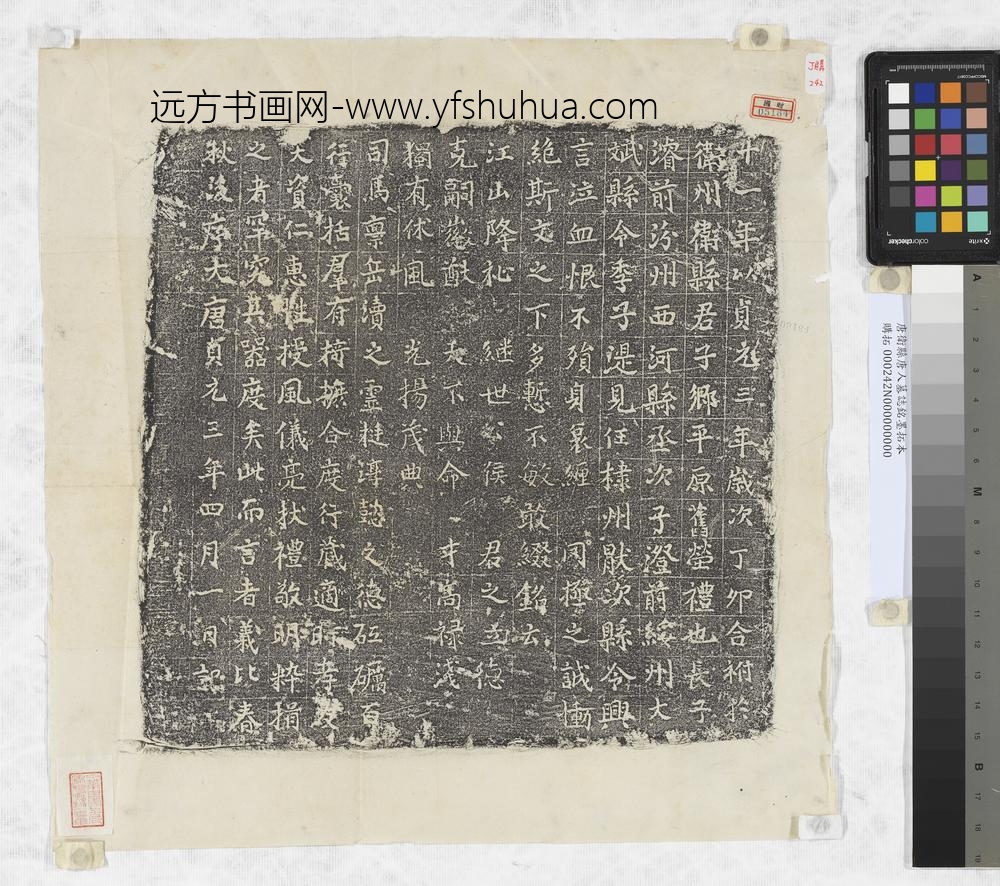 远方书画网-www.yfshuhua.com
十一年以貞元三年歲次丁卯合祔於
衛州衛縣君子鄉平原舊塋禮也長子
濬前汾州西河縣丞次子澄前綏州大
斌縣令季子湜見任棣州厭次縣令興
言泣血恨不殞身衰纏罔極之誠慟
絶斯文之下多慙不敏敢綴銘云
江山降祉 継世公侯 君之立德
克嗣 猷 天下興命 才高禄淺
獨有休風 光揚茂典
司馬禀岳瀆之靈 之德砥礪百
行囊括羣府 合度行藏適時孝
天資仁惠 授風儀亮狀禮敬明粹揖
之者罕究其器度矣此而言者義比春
秋後序大唐貞元三年四月一日記
唐衛縣唐人墓誌銘墨拓本
購拓 000242N000000000
國財
05184
購
242
colorchecker
x-rite
A
1
2
3
4
5
6
M
8
9
10
11
12
13
14
15
B
17
18
19